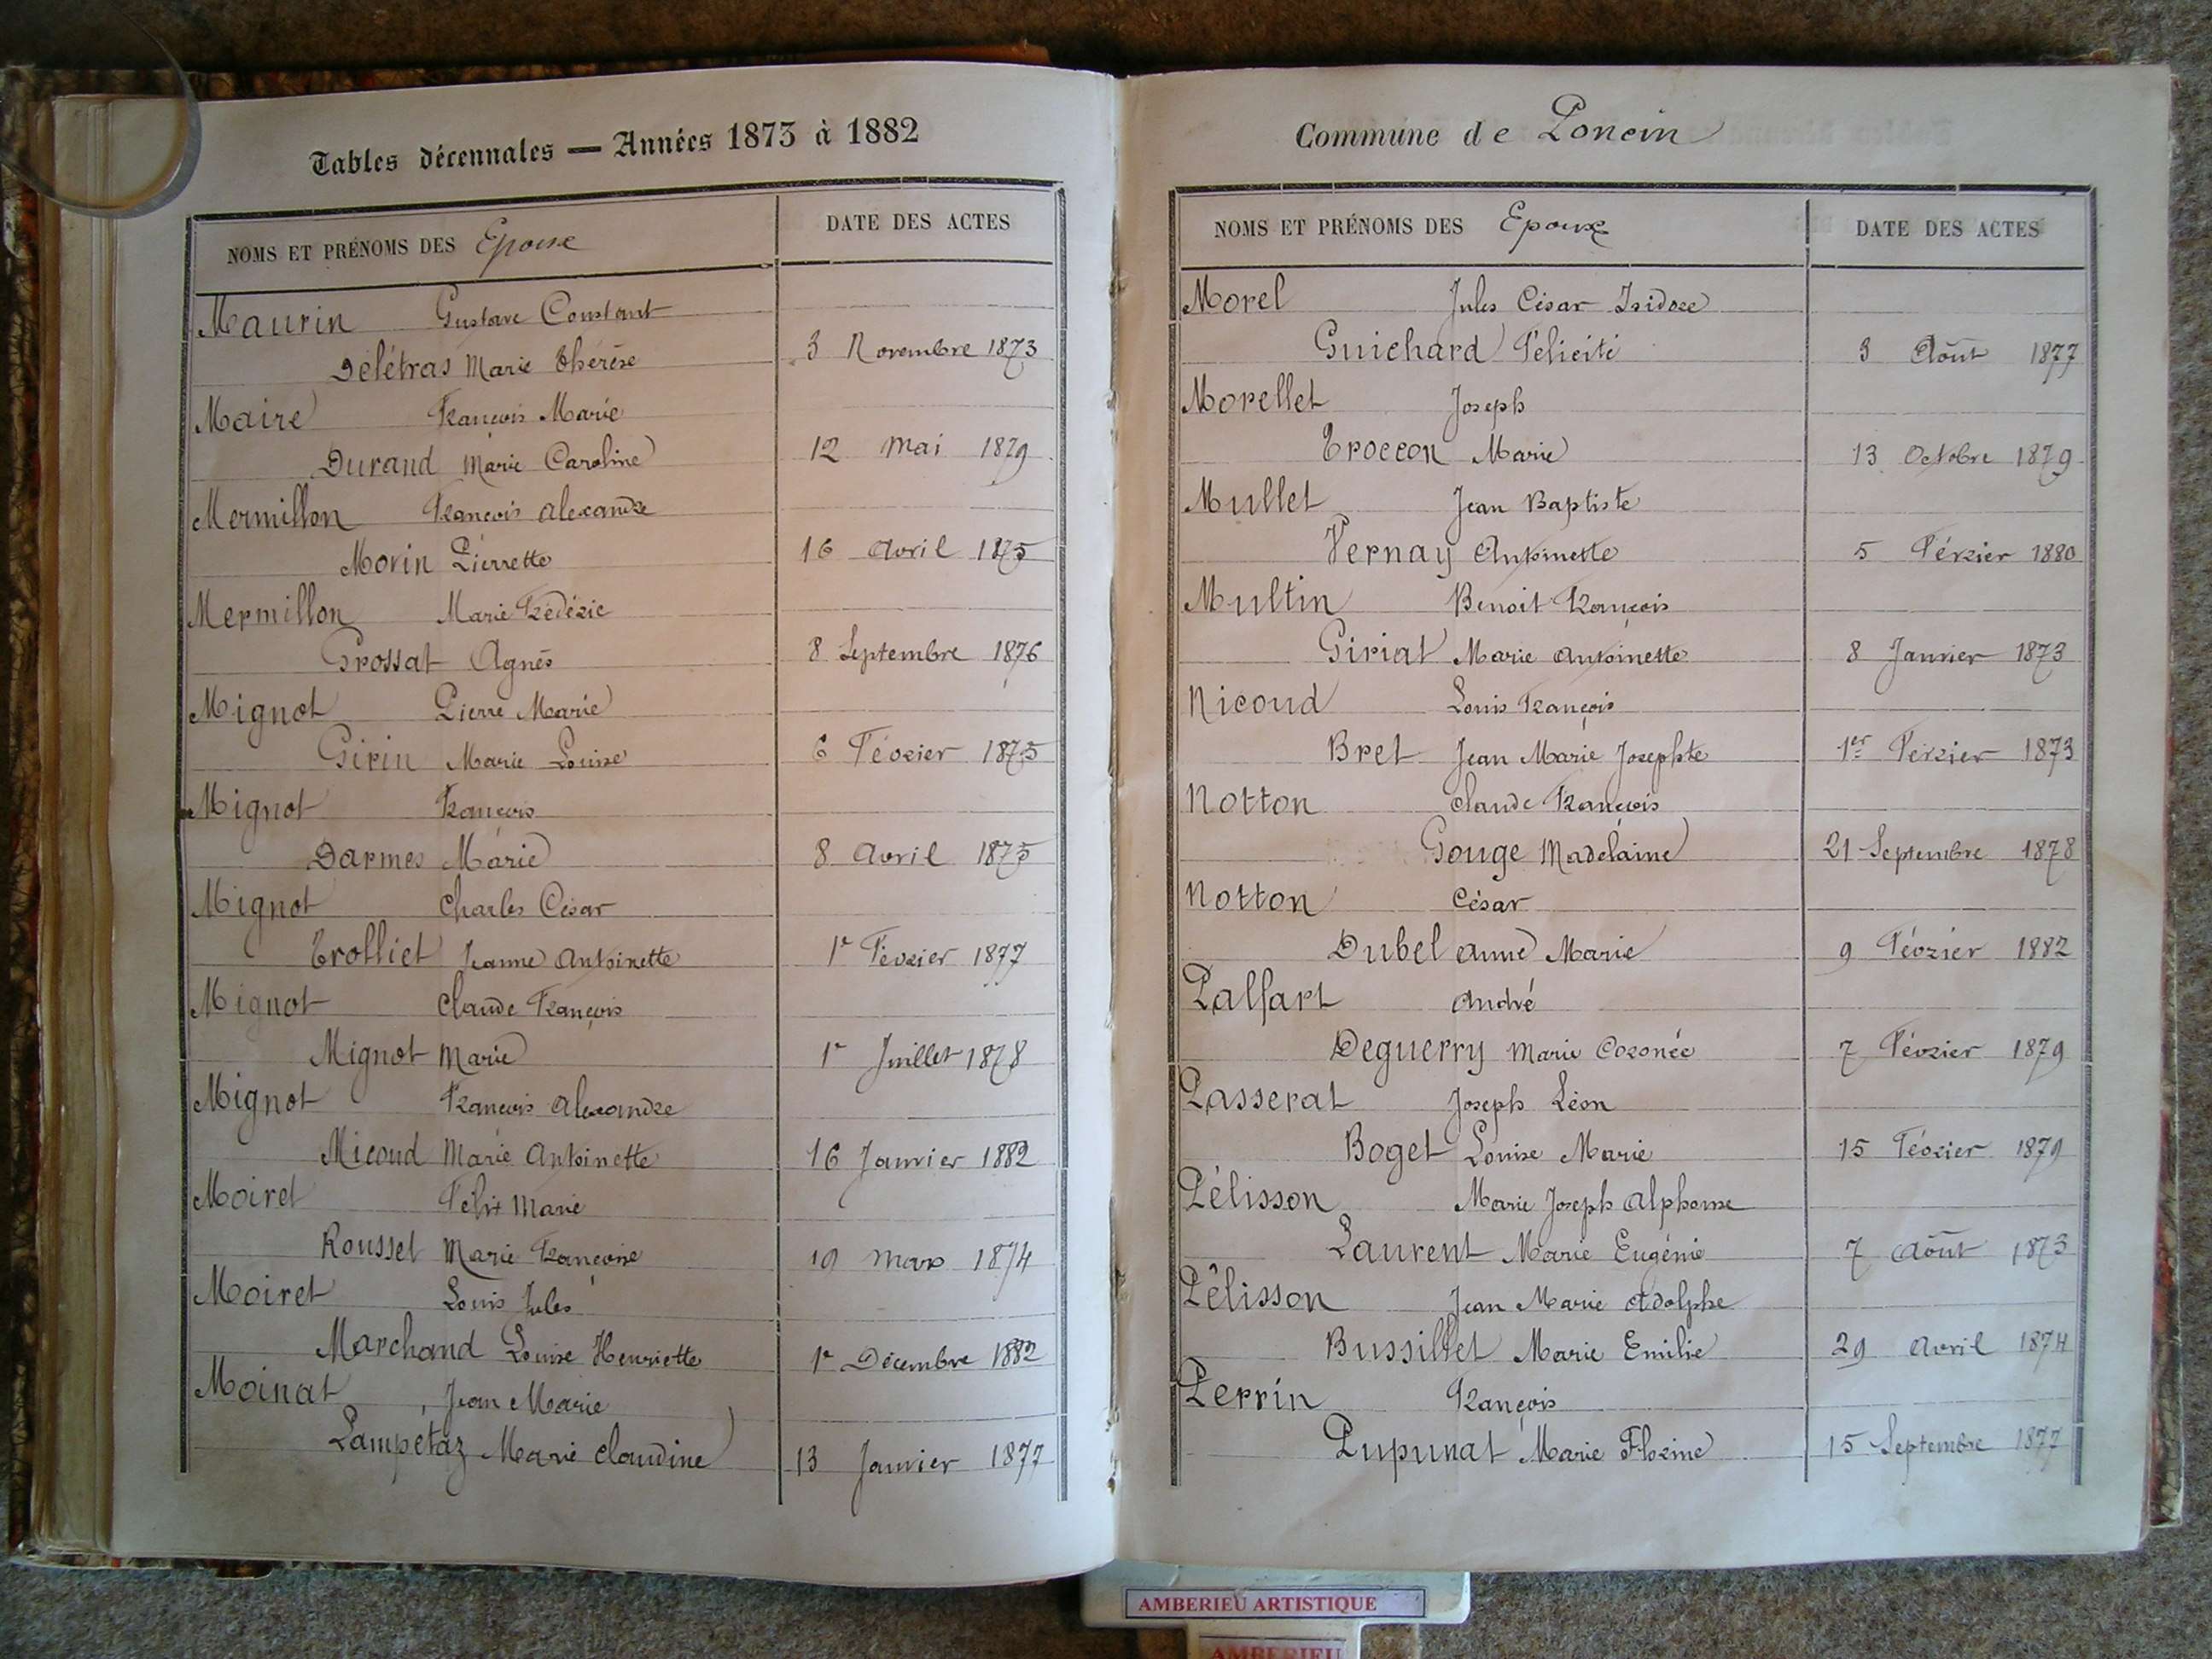 Tables décennales — Années 1873 à 1882
NOMS ET PRÉNOMS DES Epoux
DATE DES ACTES
Maurin Gustave Constant
Délétras Marie Thérèse 3 Novembre 1873
Maire François Marie
Durand Marie Caroline 12 Mai 1879
Mermillon François Alexandre
Morin Pierrette 16 Avril 1875
Mermillon Marie Frédéric
Grossat Agnès 8 Septembre 1876
Mignot Pierre Marie
Girin Marie Louise 6 Février 1875
Mignot François
Darmes Marie 8 Avril 1875
Mignot Charles César
Trolliet Jeanne Antoinette 1r Février 1877
Mignot Claude François
Mignot Marie 1r Juillet 1878
Mignot François Alexandre
Micoud Marie Antoinette 16 Janvier 1882
Moiret Félix Marie
Rousset Marie Françoise 19 Mars 1874
Moiret Louis Jules
Marchand Louise Henriette 1r Décembre 1882
Moinat Jean Marie
Lampétaz Marie Claudine 13 Janvier 1877
Commune de Poncin
NOMS ET PRÉNOMS DES Epoux
DATE DES ACTES
Morel Jules César Isidore
Guichard Félicité 3 Août 1877
Morellet Joseph
Troccon Marie 13 Octobre 1879
Mullet Jean Baptiste
Vernay Antoinette 5 Février 1880
Multin Benoit François
Giriat Marie Antoinette 8 Janvier 1873
Nicoud Louis François
Bret Jean Marie Josephte 1er Février 1873
Notton Claude François
Gouge Madelaine 21 Septembre 1878
Notton César
Dubel Anne Marie 9 Février 1882
Palfart André
Deguerry Marie Coronée 7 Février 1879
Passerat Joseph Léon
Boget Louise Marie 15 Février 1879
Pélisson Marie Joseph Alphonse
Laurent Marie Eugénie 7 Août 1873
Pélisson Jean Marie Adolphe
Bussillet Marie Emilie 29 Avril 1874
Perrin François
Pupunat Marie Florine 15 Septembre 1877
AMBERIEU ARTISTIQUE
AMBERIEU